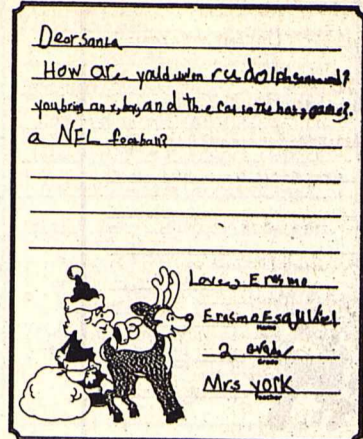 Dear santa
How are you
you bring an x,box, and the Cat in The hat, game?
a NFL football?
Love, Erasmo
Erasmo Esquivel
Name
2 grade
Grade
Mrs york
Teacher